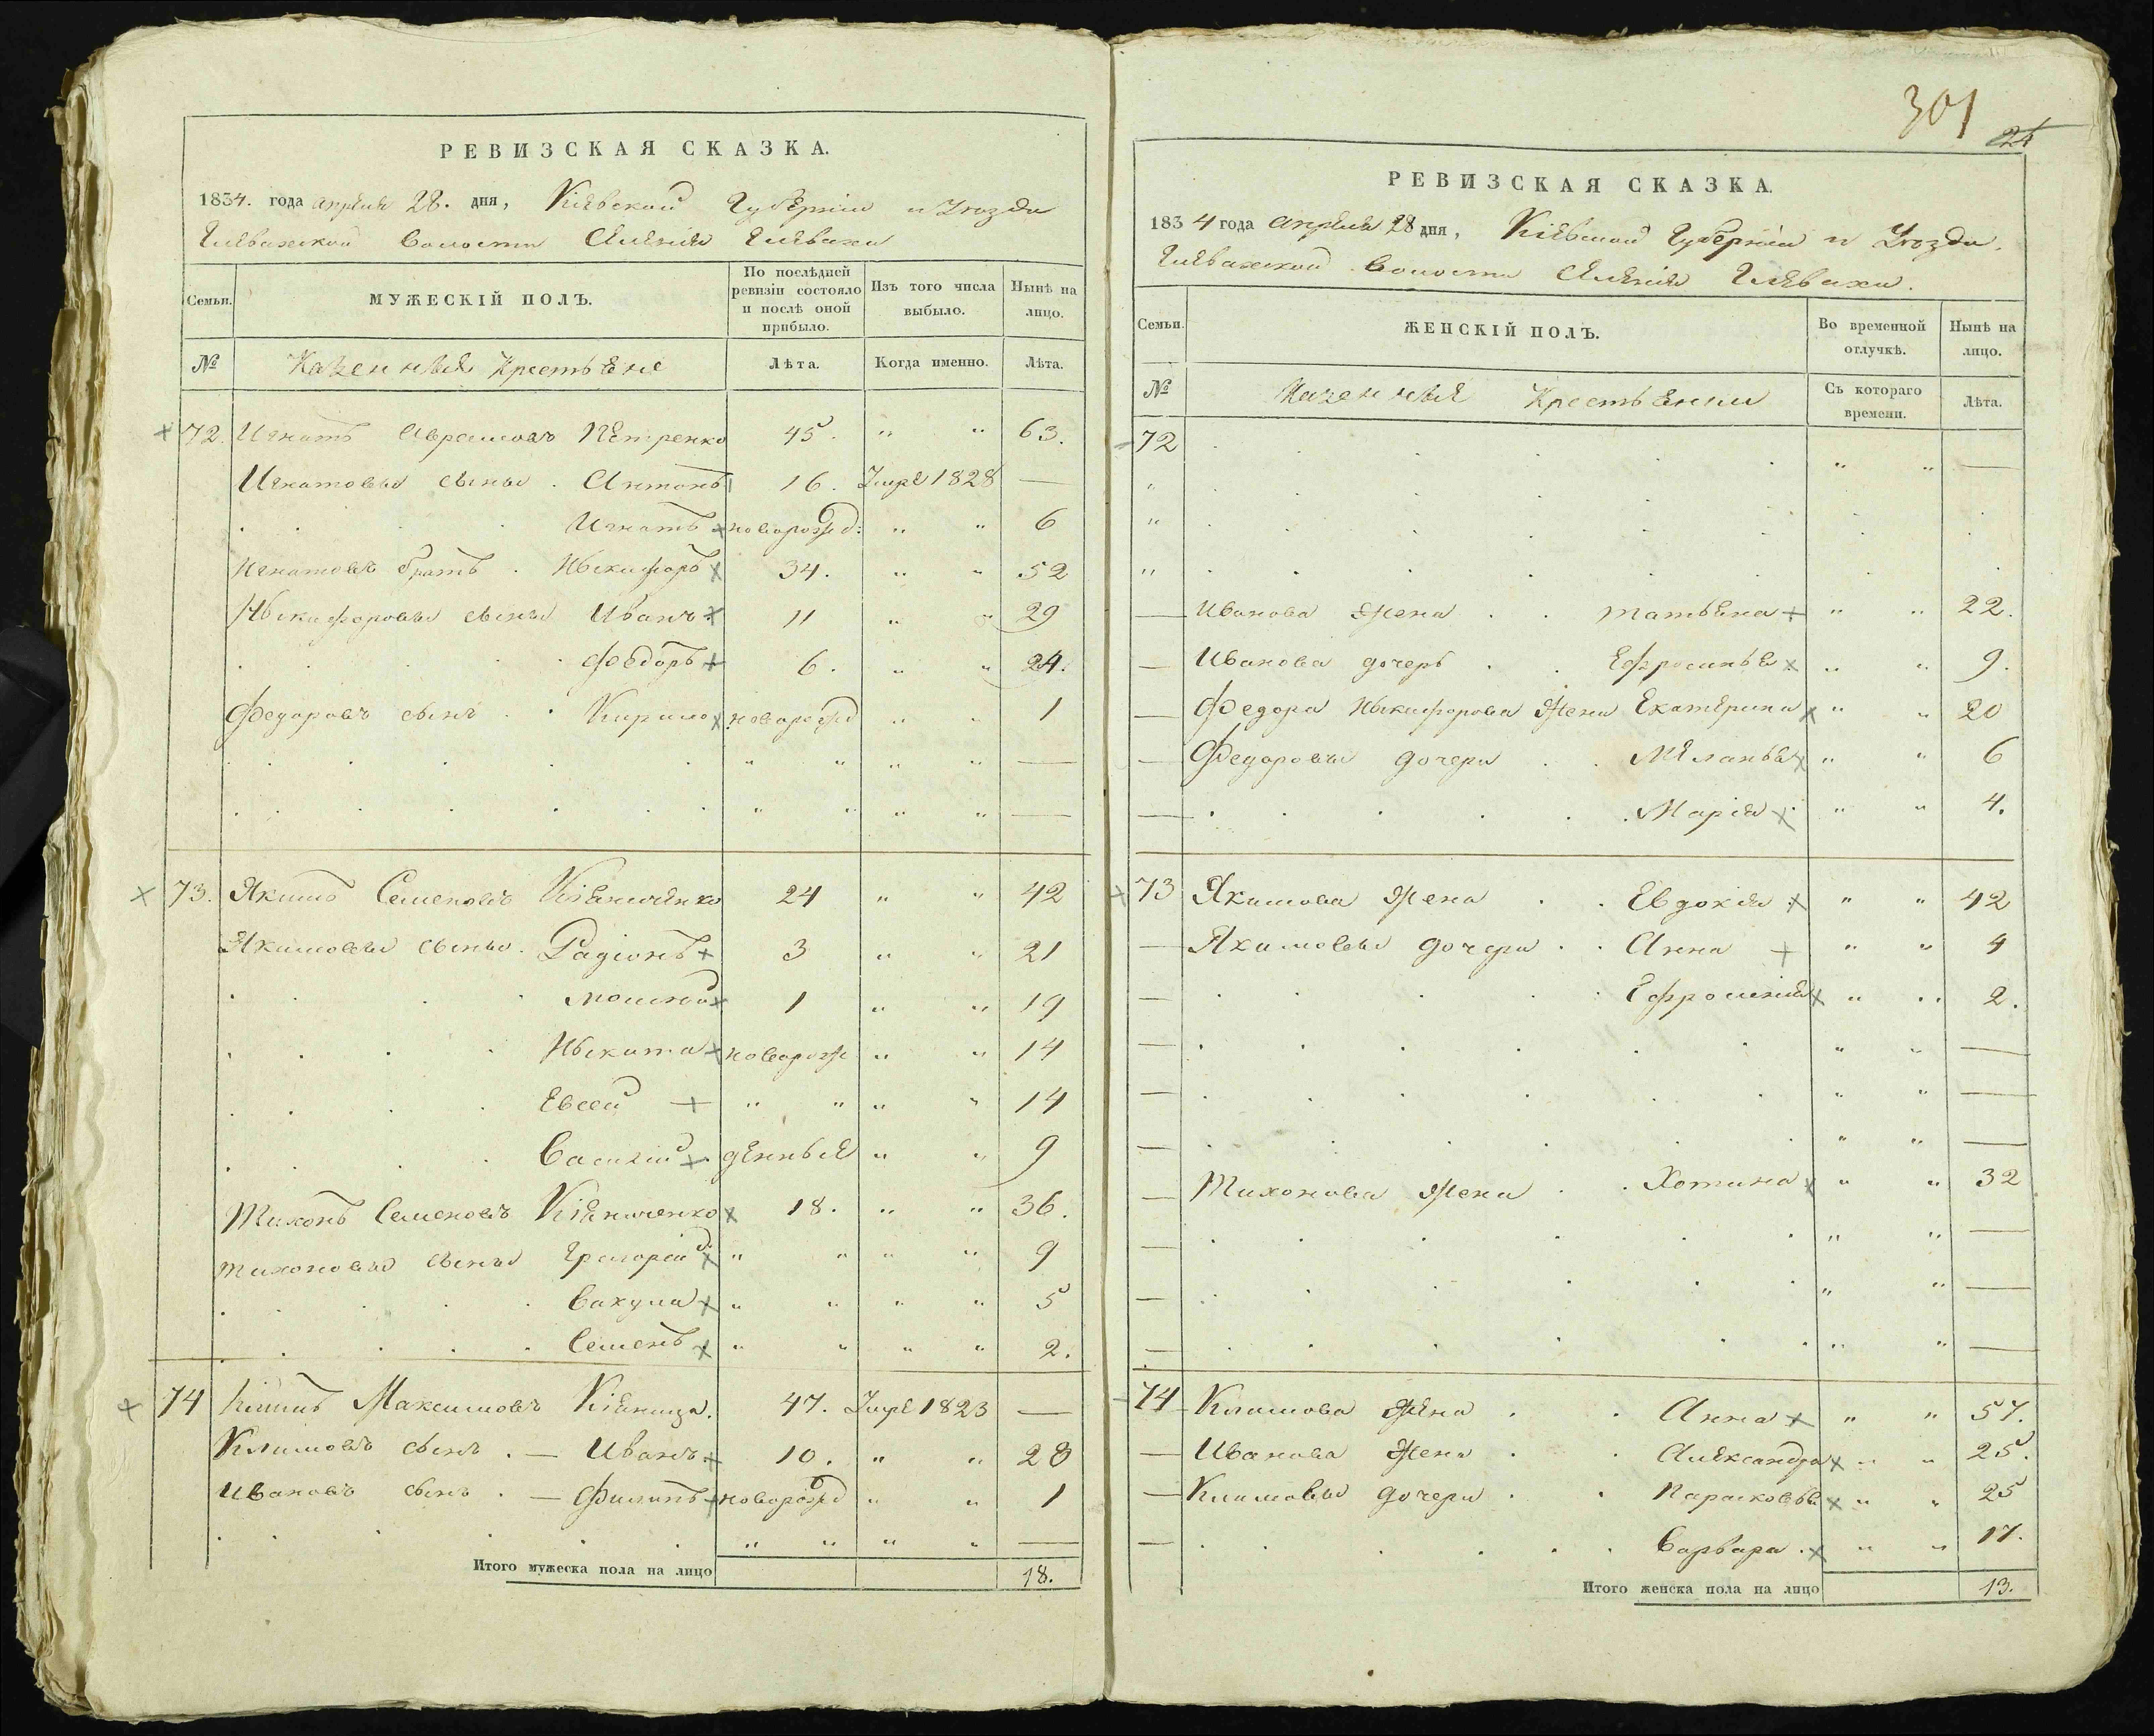 РЕВИЗСКАЯ СКАЗКА.
1834. года апреля 28. дня, Кіевской Губерніи и Уезда
Глевахской Волости Селенія Глевахи
Семьи. МУЖЕСКІЙ ПОЛЪ. По послѣдней ревизіи состояло и послѣ оной прибыло. Изъ того числа выбыло. Нынѣ на лицо.
№ Казенные Крестьяне Лѣта. Когда именно. Лѣта.
72. Игнатъ Аврамовъ Петренко 45. " " 63.
Игнатовы сыны . Антонъ 16. Умре 1828 —
Игнатъ новорожд: " " 6
Игнатовъ братъ . Никифоръ 34. " " 52
Никифоровы сыны Иванъ 11 " " 29
Федоръ 6. " " 24.
Федоровъ сынъ . . Кирило новорожд " " 1
" " " " —
" " " " —
73. Якимъ Семеновъ Кіяниченко 24 " " 42
Якимовы сыны . Радіонъ 3 " " 21
1 " " 19
Никита новорож " " 14
Евсей " " " " 14
Василий денные " " 9
Тихонъ Семеновъ Кіяниченко 18. " " 36.
Тихоновы сыны Григорій " " " " 9
Вакула " " " " 5
Семенъ " " " " 2.
74 Климъ Максимовъ Кіяница. 47. Умре 1823 —
Климовъ сынъ . — Иванъ 10. " " 28
Ивановъ сынъ . — Филипъ новорожд " " 1
" " " " —
Итого мужеска пола на лицо 18.
301
24
РЕВИЗСКАЯ СКАЗКА.
1834 года апреля 28 дня, Кіевской Губерніи и Уезда.
Глевахской Волости Селенія Глевахи.
Семьи. ЖЕНСКІЙ ПОЛЪ. Во временной отлучкѣ. Нынѣ на лицо.
№ Казенные Крестьянки Съ котораго времени. Лѣта.
72 " " —
"
"
"
— Иванова жена . . Татьяна " " 22.
— Иванова дочерь . . Ефросинья " " 9.
— Федора Никифорова жена Екатерина " " 20
— Федоровы дочери . . Меланья " " 6
— Марія " " 4.
73 Якимова жена . . Евдокія " " 42
— Якимовы дочери . . Анна " " 4
— Ефросинія " " 2.
— " " —
— " " —
— " " —
— Тихонова жена . . Хотина " " 32
— " " —
— " " —
— " " —
74 Климова жена . . Анна " " 57.
— Иванова жена . . Александра " " 25.
— Климовы дочери . . Парасковья " " 25
— Варвара " " 17.
Итого женска пола на лицо 13.